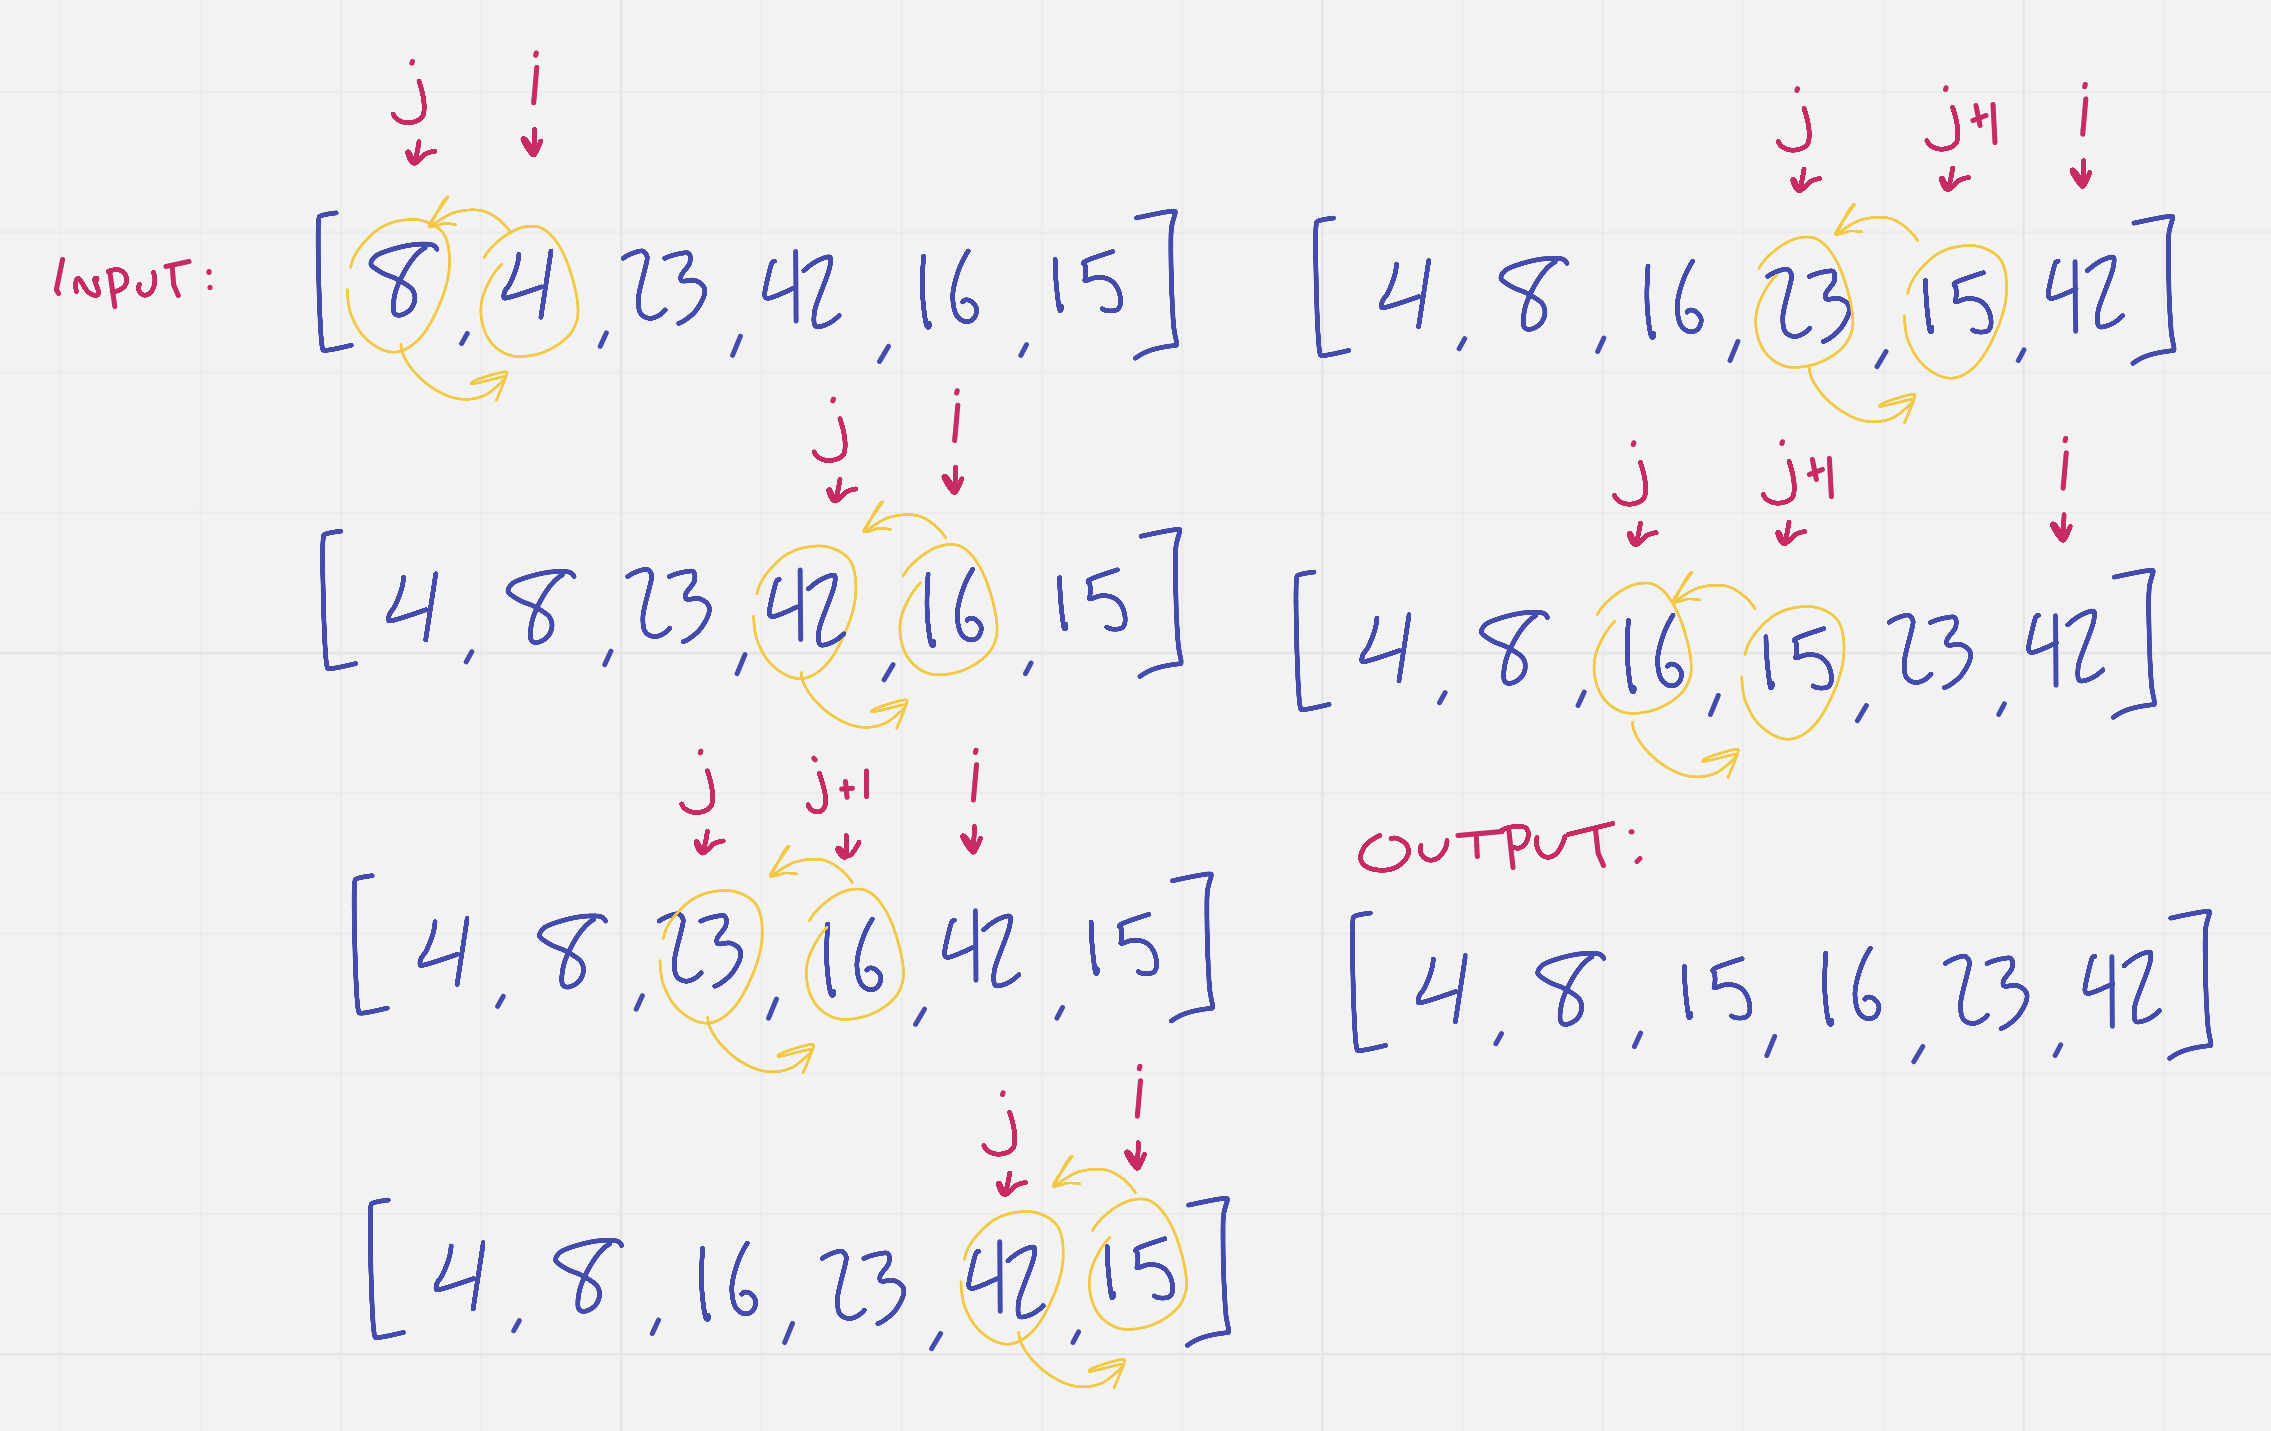 j i
INPUT: [8, 4, 23, 42, 16, 15]
j i
[4, 8, 23, 42, 16, 15]
j j+1 i
[4, 8, 23, 16, 42, 15]
j i
[4, 8, 16, 23, 42, 15]
j j+1 i
[4, 8, 16, 23, 15, 42]
j j+1 i
[4, 8, 16, 15, 23, 42]
OUTPUT:
[4, 8, 15, 16, 23, 42]